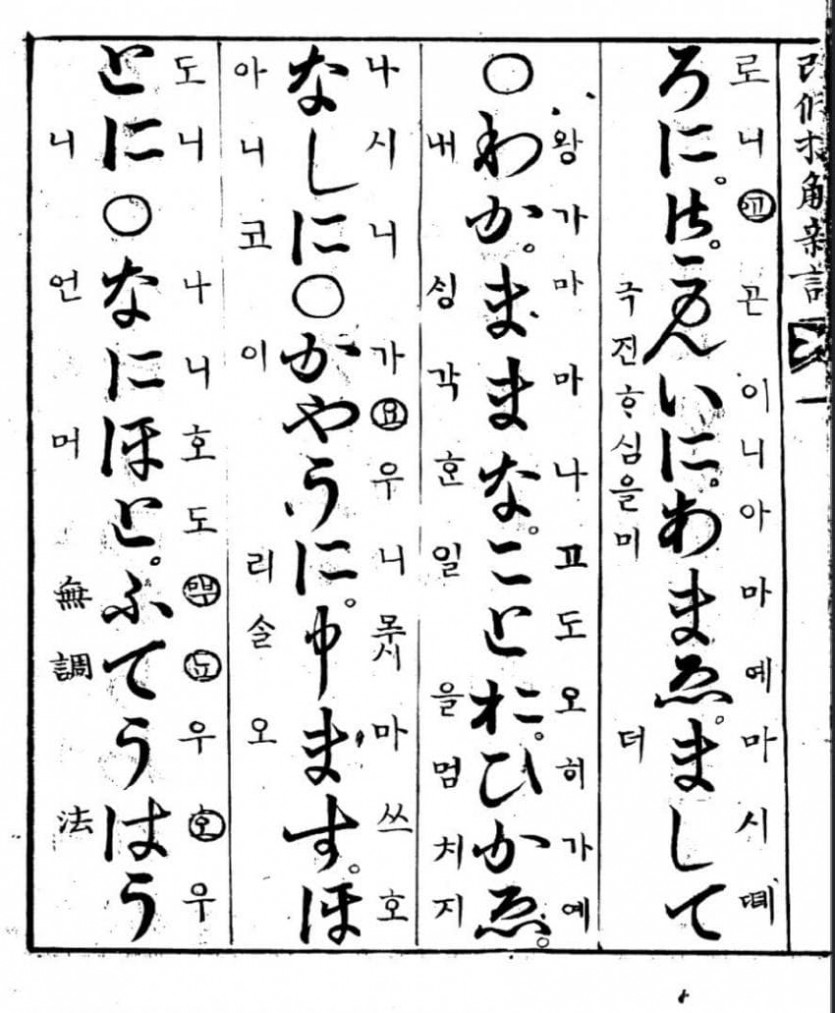 로니곤이니아마예마시뗴
ろに。御。こんいに。あまゑ。まして
극진ᄒᆞ심을미더
왕가마마나고도오히가예
○わか。ままな。ことお。ひかゑ。
내싱각ᄒᆞᆫ일을멈치지
나시니가요우니못시마쓰호
なしに○かやうに。申ます。ほ
아니코이리솔오
도니나니호도우호우
とに○なにほと。ふてうはう
니언머無調法